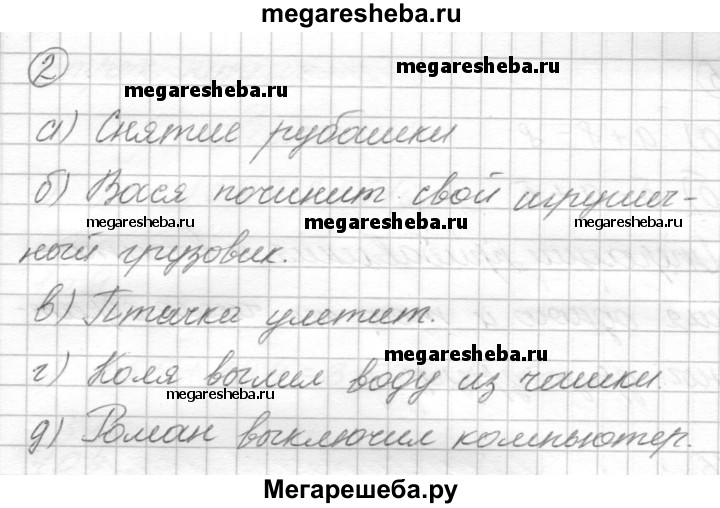 megaresheba.ru
2
megaresheba.ru
megaresheba.ru
а) Снятие рубашки
б) Вася починит свой игрушеч-
megaresheba.ru
megaresheba.ru
megaresheba.ru
ный грузовик.
в) Птичка улетит.
megaresheba.ru
г) Коля вылил воду из чашки.
megaresheba.ru
д) Роман выключил компьютер.
Мегарешеба.ру